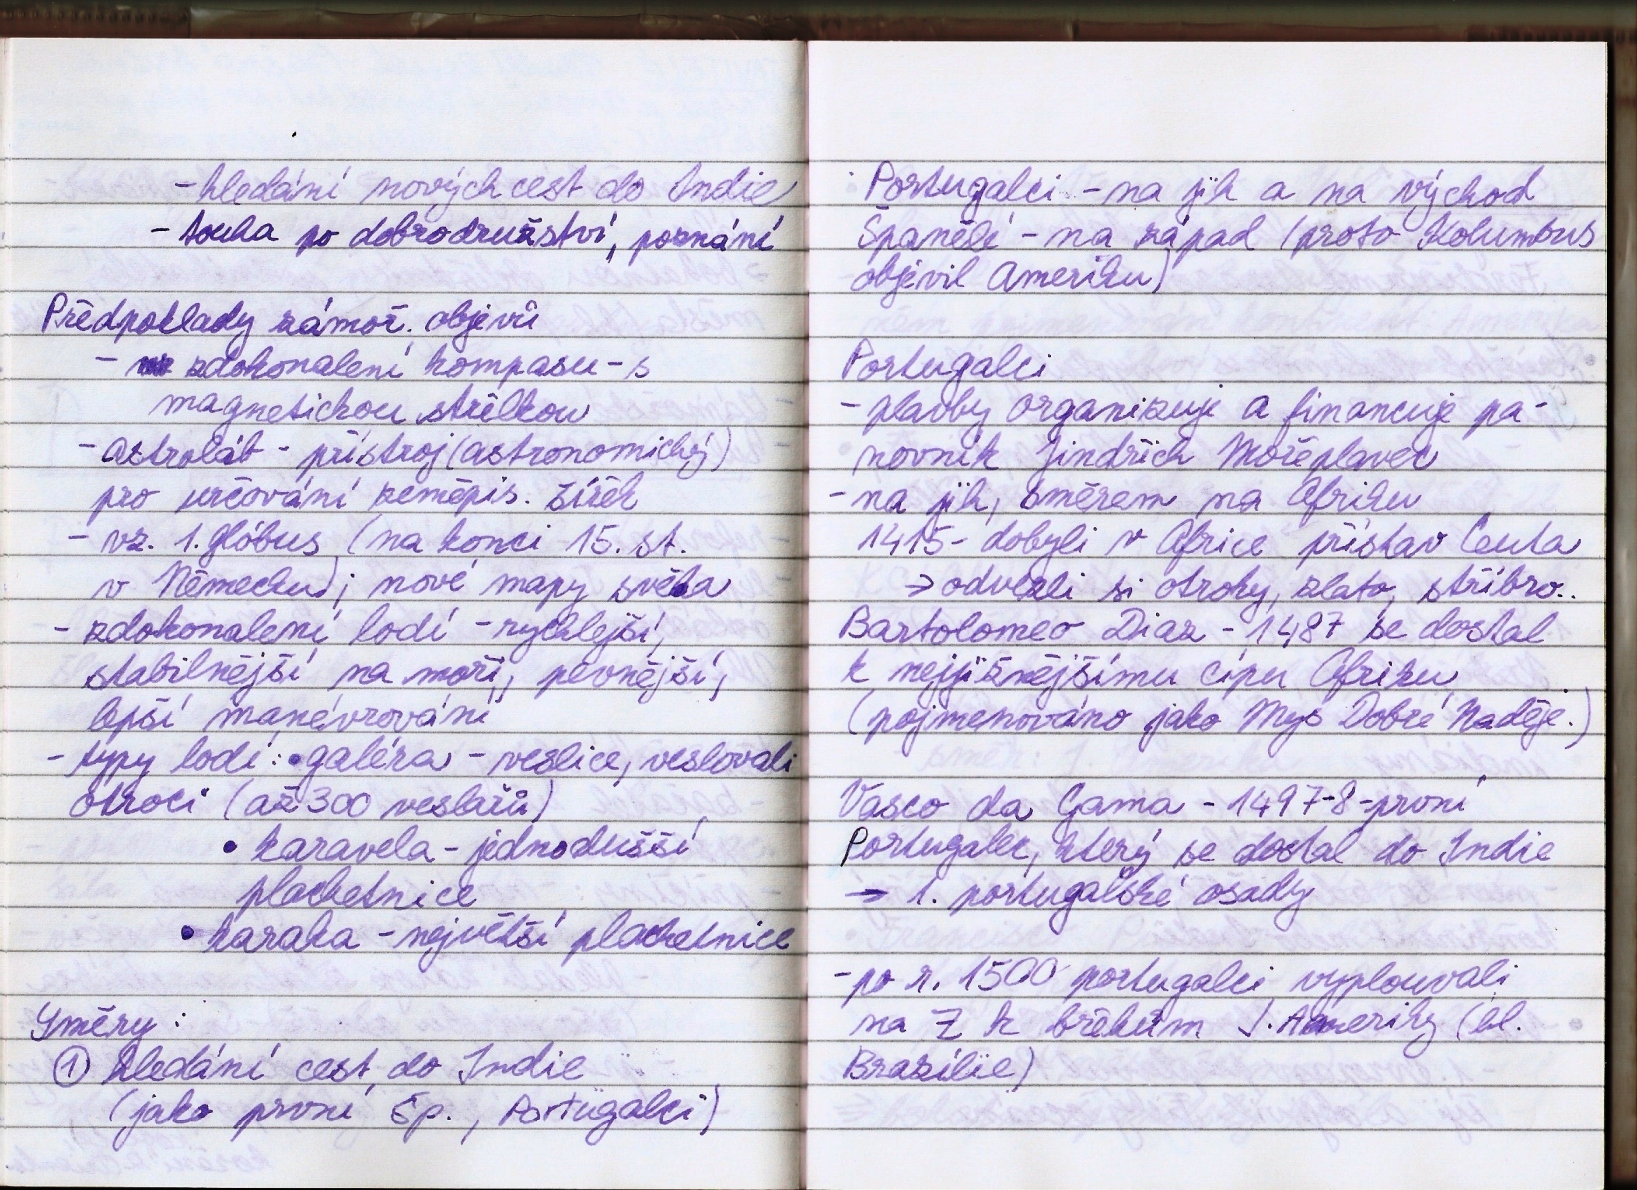 - hledání nových cest do Indie
- touha po dobrodružství, poznání
Předpoklady zámoř. objevů
- zdokonalení kompasu - s
magnetickou střelkou
- astroláb - přístroj (astronomický)
pro určování zeměpis. šířek
- vz. 1. glóbus (na konci 15. st.
v Německu); nové mapy světa
- zdokonalení lodí - rychlejší,
stabilnější na moři, pevnější,
lepší manévrování
- typy lodí: • galéra - veslice, veslovali
otroci (až 300 veslařů)
• karavela - jednodušší
plachetnice
• karaka - největší plachetnice
Směry:
① hledání cest do Indie
(jako první Šp., Portugalci)
Portugalci - na jih a na východ
Španělé - na západ (proto Kolumbus
objevil Ameriku)
Portugalci
- plavby organizuje a financuje pa-
novník Jindřich Mořeplavec
- na jih, směrem na Afriku
1415 - dobyli v Africe přístav Ceuta
→ odvezli si otroky, zlato, stříbro..
Bartolomeo Diaz - 1487 se dostal
k nejjižnějšímu cípu Afriku
(pojmenováno jako Mys Dobré Naděje.)
Vasco da Gama - 1497-8 - první
Portugalec, který se dostal do Indie
→ 1. portugalské osady
- po r. 1500 portugalci vyplouvali
na Z k břehům J. Ameriky (hl.
Brazílie)